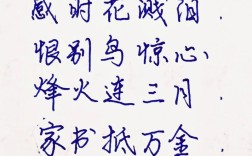 感时花溅泪.
恨别鸟惊心、
烽火连三月.
家书抵万金.